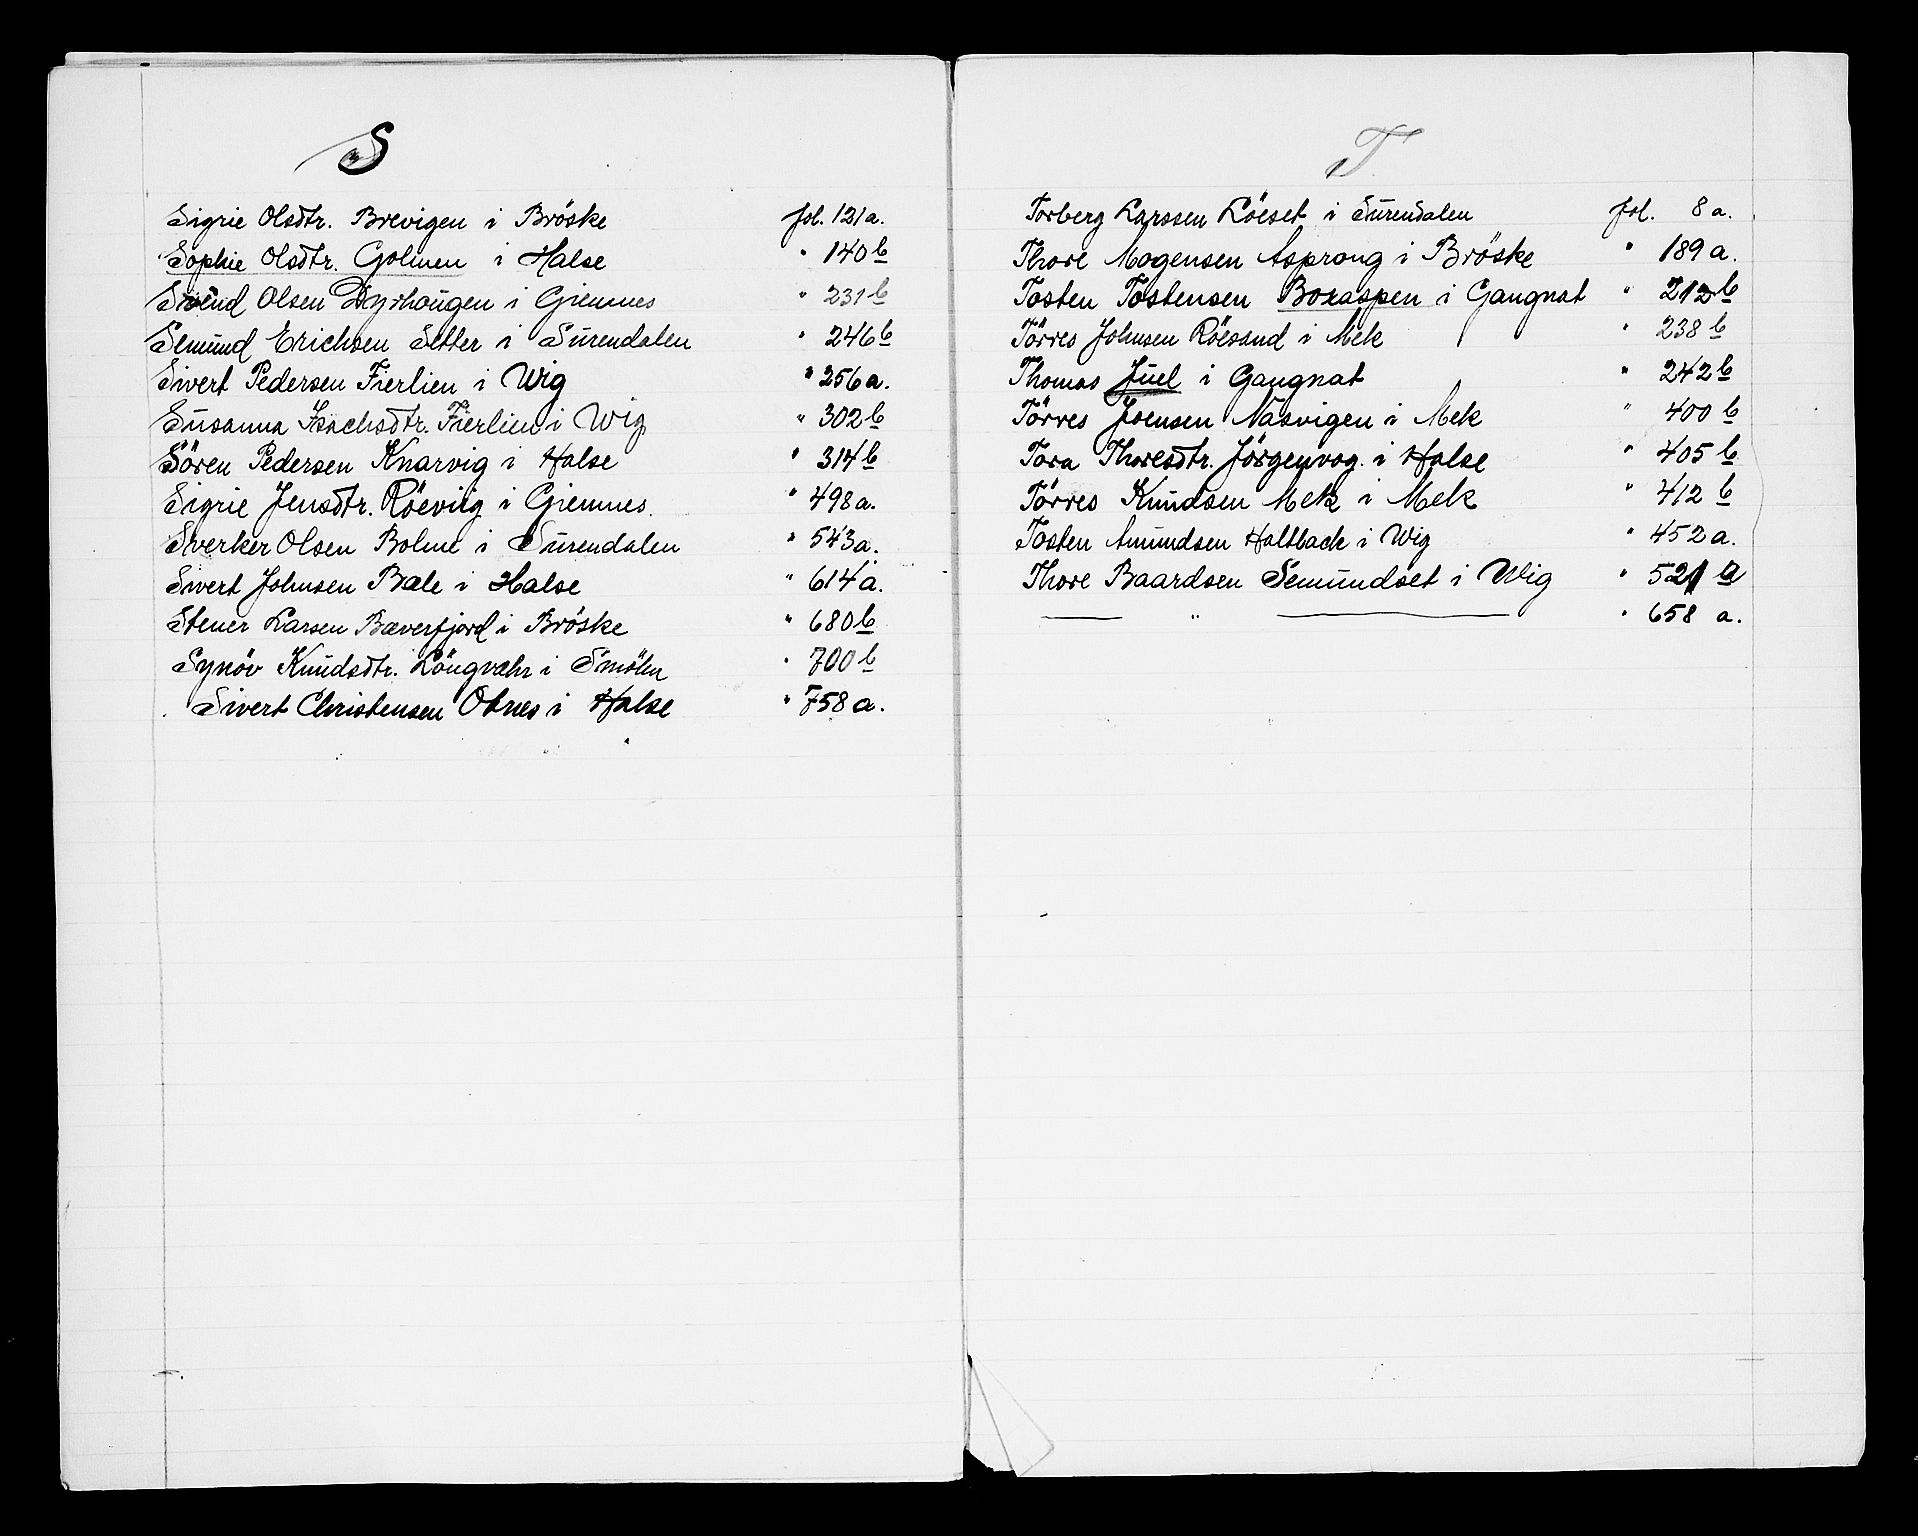 S
Sigrie Olsdtr. Brevigen i Bröske fol. 121 a.
Sophie Olsdtr. Golmen i Halse " 140 b
Svend Olsen Dyrhougen i Giemnes " 231 b
Semund Erichsen Setter i Surendalen " 246 b
Sivert Pedersen Fierlien i Wig " 256 a.
Susanna Isachsdtr. Fierlien i Wig " 302 b
Sören Pedersen Knarvig i Halse " 314 b
Sigrie Jensdtr. Röeviig i Giemnes. " 498 a.
Sverker Olsen Bolme i Surendalen " 543 a.
Sivert Johnsen Bæle i Halse " 614 a.
Stener Larsen Bæverfjord i Bröske " 680 b
Synöv Knudsdtr. Löngvæhr i Smölen " 700 b
Sivert Christensen Otnes i Halse " 758 a.
T
Torberg Larssen Löeset i Surendalen fol. 8 a.
Thore Mogensen Asprong i Bröske " 189 a.
Tosten Tostensen Boxaspen i Gangnat " 212 b
Törres Johnsen Röesand i Mek " 238 b
Thomas Juel i Gangnat " 242 b
Törres Joensen Nasvigen i Mek " 400 b
Tora Thoresdtr. Jörgenvog. i Halse " 405 b
Törres Knudsen Mek i Mek " 412 b
Tosten Amundsen Holtback i Wig " 452 a.
Thore Baardsen Semundset i Wig " 521 a
— " — " 658 a.